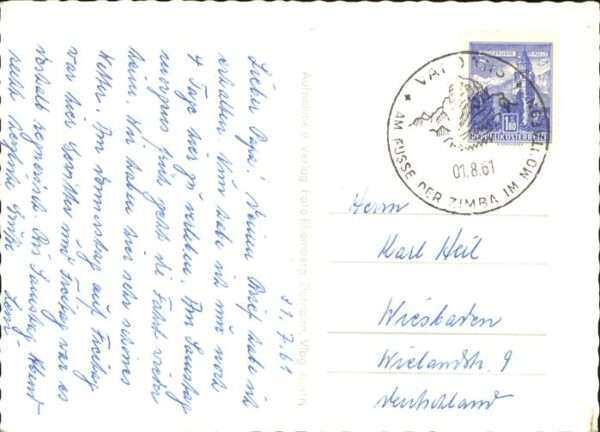 31.7.61
Lieber Papa! Deinen Brief habe ich
erhalten. Nun habe ich nur noch
4 Tage hier zu verleben. Am Samstag
morgens früh geht die Fahrt wieder
heim. Wir haben hier sehr schönes
Wetter. Am Donnerstag auf Freitag
war hier Gewitter und Freitag war es
deshalb regnerisch. Bis Samstag Abend
recht herzliche Grüße
Aufnahme u. Verlag Foto
VANDANS
AM FUSSE DER ZIMBA IM MONTAFON
01.8.61
1.80
REPUBLIK ÖSTERREICH
Herrn
Karl Heil
Wiesbaden
Wielandstr. 9
Deutschland